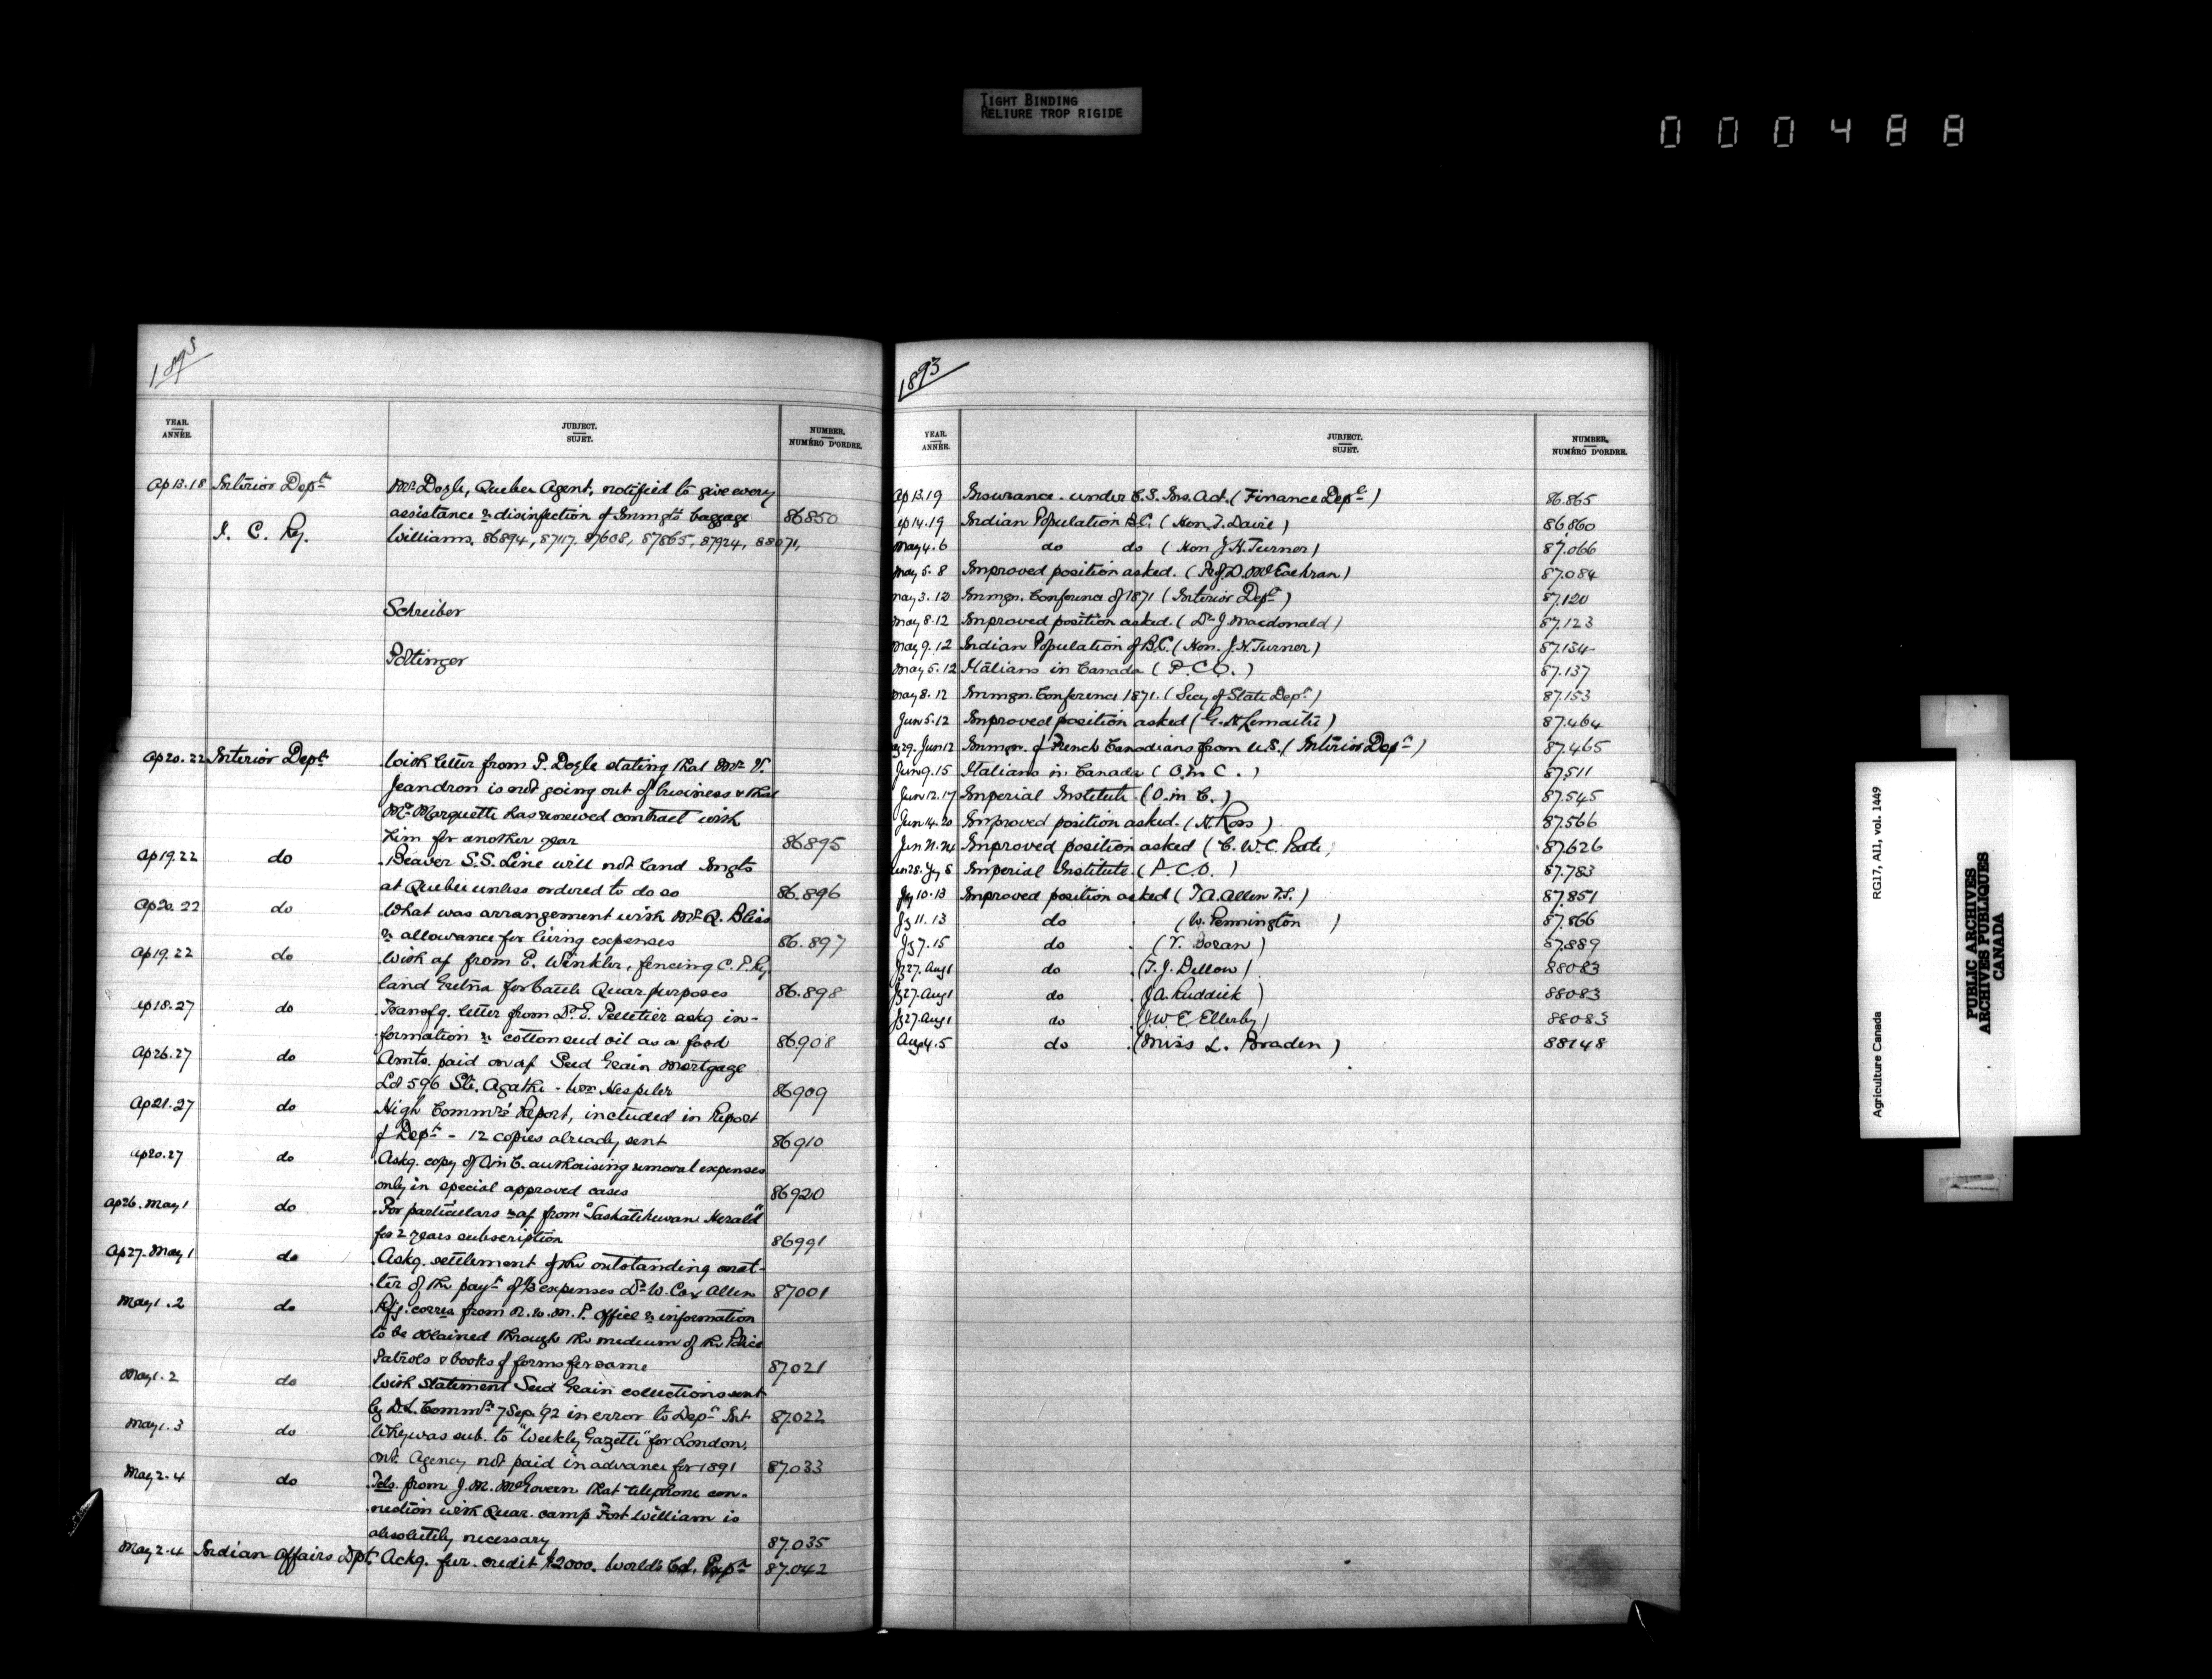 TIGHT BINDING
RELIURE TROP RIGIDE
000488
1893
YEAR.
ANNÉE.
JUBJECT.
SUJET.
NUMBER.
NUMÉRO D'ORDRE.
Ap 13.18 Interior Dept Mr Doyle, Quebec Agent, notified to give every
assistance re disinfection of Immgts baggage 86850
I. C. Ry. Williams. 86894, 87117, 87608, 87865, 87924, 88071,
Schreiber
Pottinger
Ap 20.22 Interior Dept With letter from P. Doyle stating that Mr V.
Jeandron is not going out of business & that
Mr Marquette has renewed contract with
him for another year 86895
Ap 19.22 do Beaver S.S. Line will not land Imgts
at Quebec unless ordered to do so 86.896
Ap 20.22 do What was arrangement with Mr Q. Bliss
re allowance for living expenses 86.897
Ap 19.22 do With a/c from E. Winkler, fencing C.P. Ry
land Gretna for Cattle Quar. purposes 86.898
Ap 18.27 do Transfg. letter from Dr E. Pelletier askg in-
formation re cotton seed oil as a food 86.908
Ap 26.27 do Amts. paid on a/c Seed Grain Mortgage
Lot 596 Ste. Agathe - Wm Hespeler 86909
Ap 21.27 do High Commrs Report, included in Report
of Dept - 12 copies already sent 86910
Ap 20.27 do Askg. copy of O in C. authorising removal expenses
only in special approved cases 86920
Ap 26. May 1 do For particulars re a/c from "Saskatchewan Herald"
for 2 years subscription 86991
Ap 27. May 1 do Askg. settlement of the outstanding mat-
ter of the payt of expenses Dr W. Cox Allen 87001
May 1.2 do Rfg. corres from N.W.M.P. Office re information
to be obtained through the medium of the Police
Patrols & books of forms for same 87.021
May 1.2 do With Statement Seed Grain collections sent
by D.L. Commr 7 Sep. 92 in error to Dept Int 87.022
May 1.3 do Why was sub. to "Weekly Gazette" for London,
Ont. Agency not paid in advance for 1891 87.033
May 2.4 do Tels. from J.M. McGovern that telephone con-
nection with Quar. camp Fort William is
absolutely necessary 87.035
May 2.4 Indian Affairs Dpt. Ackg. fur. credit $2000. World's Col. Expn 87.042
1893
YEAR.
ANNÉE.
JUBJECT.
SUJET.
NUMBER.
NUMÉRO D'ORDRE.
Ap 13.19 Insurance under C.S. Ins. Act. (Finance Dept) 86.865
Ap 14.19 Indian Population B.C. (Hon. T. Davie) 86860
May 4.6 do do (Hon J.H. Turner) 87.066
May 5.8 Improved position asked. (Prof. D. McEachran) 87.084
May 3.12 Immgn. Conference of 1871 (Interior Dept) 87.120
May 8.12 Improved position asked. (Dr J Macdonald) 87.123
May 9.12 Indian Population of B.C. (Hon. J.H. Turner) 87.134
May 5.12 Italians in Canada (P.C.O.) 87.137
May 8.12 Immgn. Conference 1871. (Secy of State Dept) 87.153
Jun 5.12 Improved position asked (G. H Lemaitre) 87.464
29. Jun 12 Immgn. of French Canadians from U.S. (Interior Dept) 87.465
Jun 9.15 Italians in Canada (O in C.) 87.511
Jun 12.17 Imperial Institute (O. in C.) 87.545
Jun 14.20 Improved position asked. (H. Ross) 87.566
Jun Improved position asked (C.W.C. Bate) 87626
Jun 28. Jy 8 Imperial Institute (P.C.O.) 87.783
Jy 10.13 Improved position asked (T A. Allen) 87.851
Jy 11.13 do (W. Pennington) 87.866
Jy 7.15 do (V. Doran) 87.889
Jy 27. Aug 1 do (T. J. Dillow) 88083
Jy 27. Aug 1 do (J A. Ruddick) 88083
Jy 27. Aug 1 do (J. W. E. Ellerby) 88083
Aug 4.5 do (Miss L. Braden) 88148
Agriculture Canada RG17, AII, vol. 1449
PUBLIC ARCHIVES
ARCHIVES PUBLIQUES
CANADA